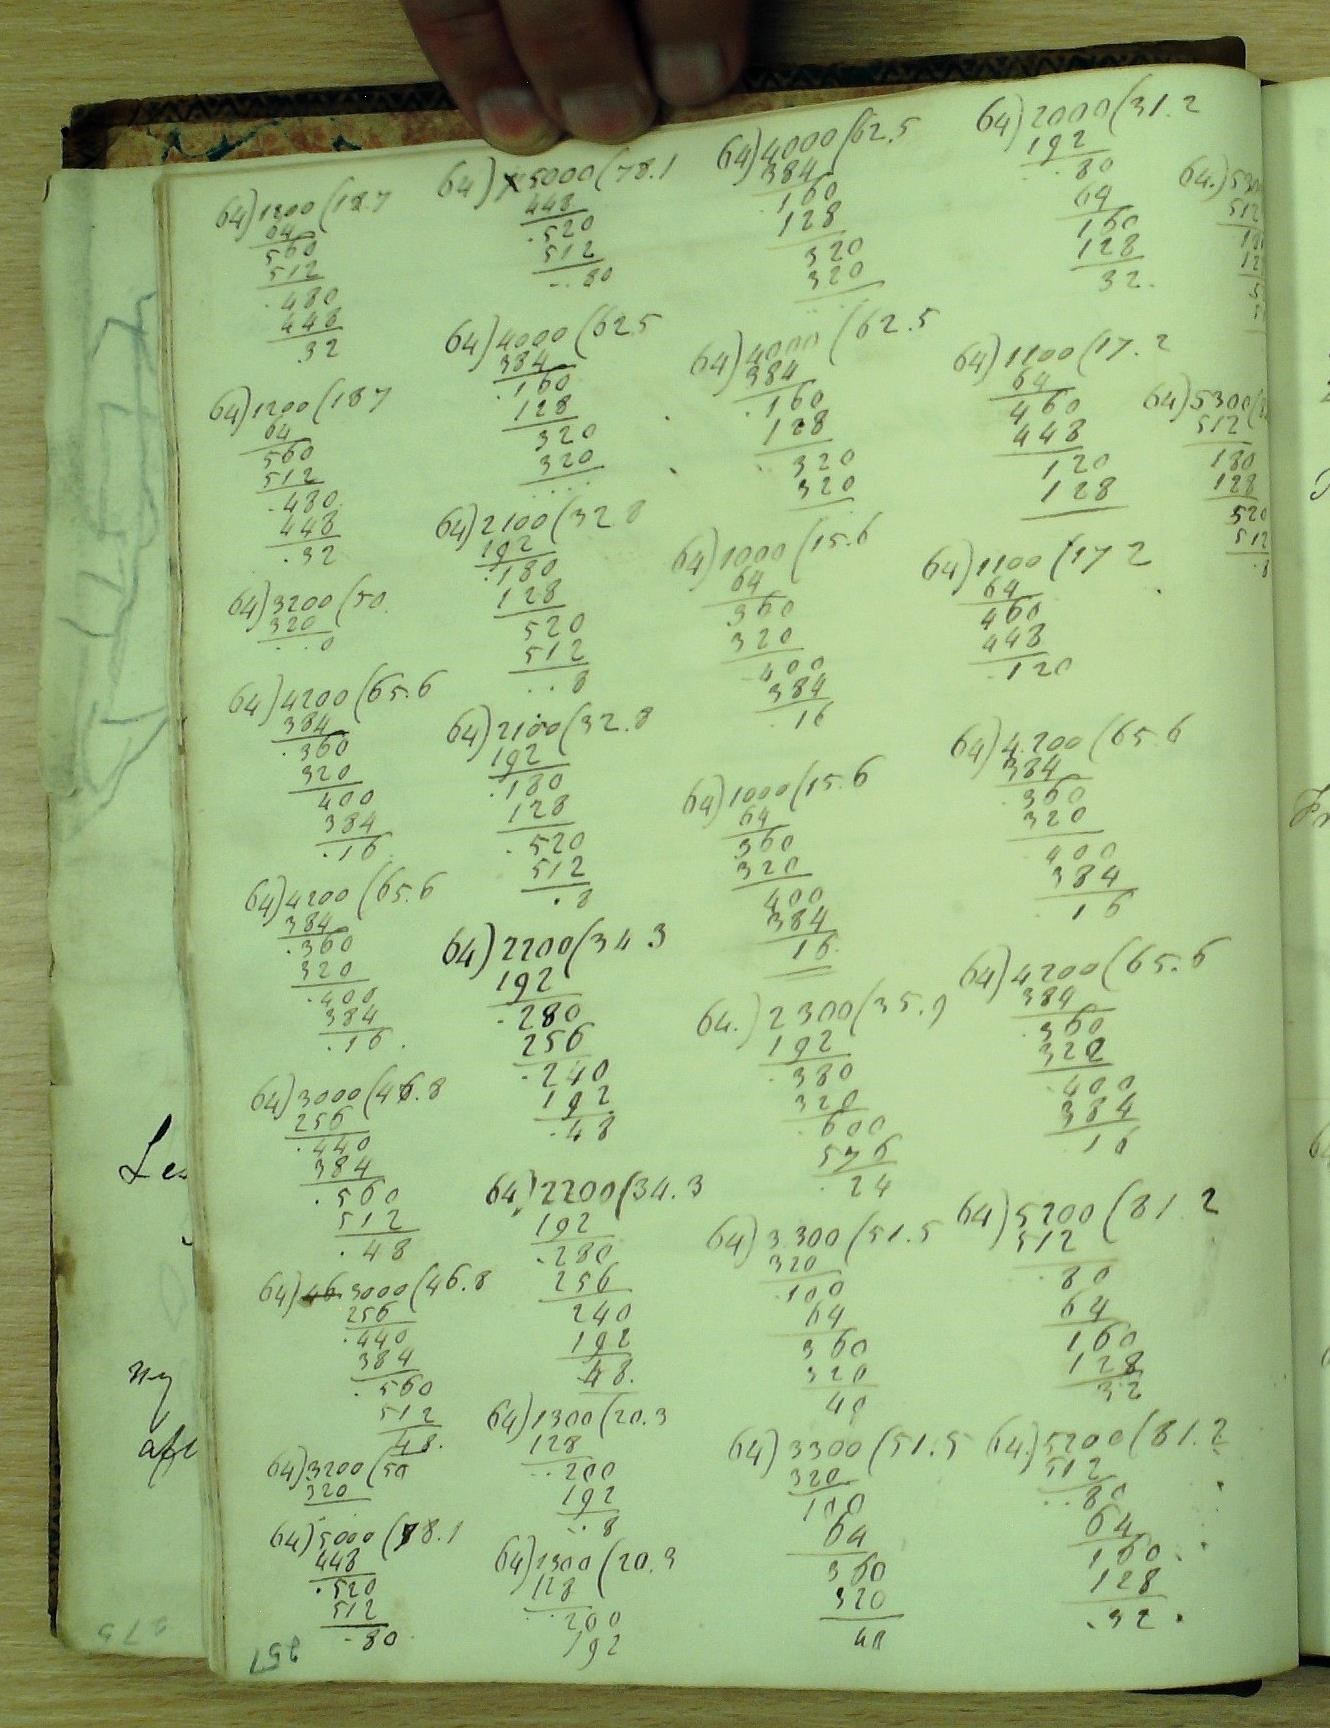 64)1200(18.7
64
560
512
.480
448
.32
64)1200(187
64
560
512
.480
448
.32
64)3200(50.
320
...0
64)4200(65.6
384
.360
320
400
384
.16
64)4200(65.6
384
.360
320
.400
384
.16.
64)3000(46.8
256
.440
384
.560
512
.48
64)46 3000(46.8
256
.440
384
.560
512
48.
64)3200(50
320
64)5000(78.1
448
.520
512
.80
64)5000(78.1
448
.520
512
..80
64)4000(625
384
.160
128
320
320
64)2100(328
192
.180
128
520
512
..8
64)2100(32.8
192
.180
128
.520
512
.8
64)2200(34 3
192
.280
256
.240
192
.48
64)2200(34.3
192
.280
256
240
192
48.
64)1300(20.3
128
..200
192
..8
64)1300(20.3
128
..200
192
64)4000(62.5
384
.160
128
320
320
64)4000(62.5
384
.160
128
320
320
64)1000(15.6
64
360
320
400
384
.16
64)1000(15.6
64
360
320
400
384
16.
64.)2300(35.9
192
.380
320
.600
576
.24
64)3300(51.5
320
.100
64
360
320
40
64)3300(51.5
320
100
64
360
320
40
64)2000(31.2
192
.80
64
160
128
32.
64)1100(17.2
64
460
448
120
128
64)1100(172
64
460
448
.120
64)4200(65.6
384
.360
320
400
384
16
64)4200(65.6
384
.360
320
.400
384
16
64)5200(81.2
512
.80
64
160
128
32
64.)5200(81.2
512
..80
64
160
128
.32.
64.)530
512
64)5300(
512
180
128
520
512
.8
257
273
Les
my